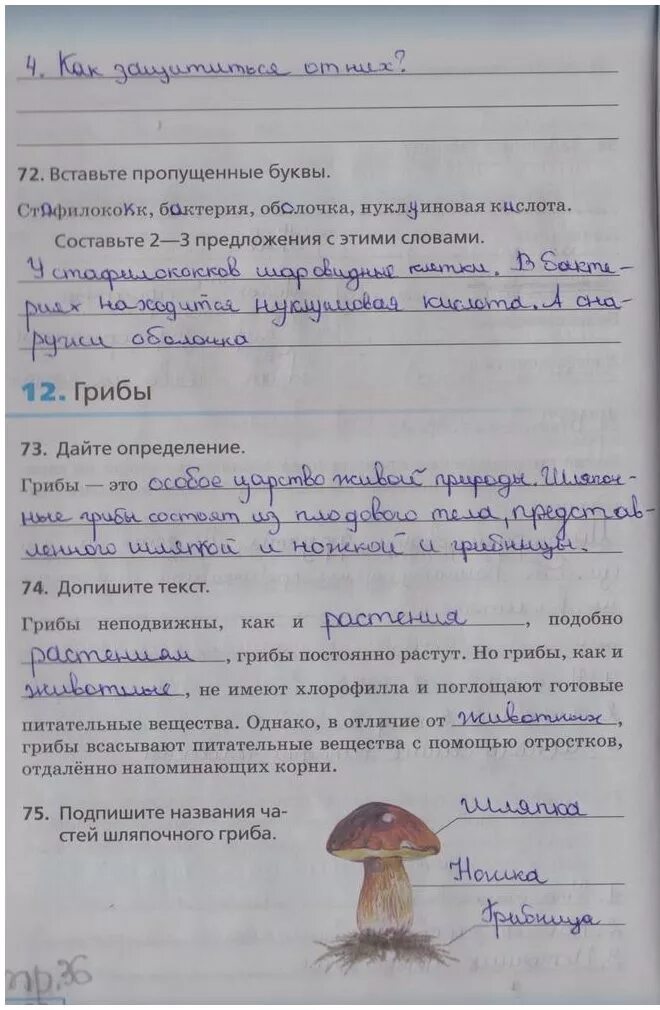 4. Как защититься от них?
72. Вставьте пропущенные буквы.
Стафилококк, бактерия, оболочка, нуклуиновая кислота.
Составьте 2—3 предложения с этими словами.
У стафилококков шаровидные клетки. В бакте-
риях находится нуклуиновая кислота. А сна-
ружи оболочка
12. Грибы
73. Дайте определение.
Грибы — это особое царство живой природы. Шляпоч-
ные грибы состоят из плодового тела, представ-
ленного шляпкой и ножкой и грибницы.
74. Допишите текст.
Грибы неподвижны, как и растения, подобно
растениям, грибы постоянно растут. Но грибы, как и
животные, не имеют хлорофилла и поглощают готовые
питательные вещества. Однако, в отличие от животных,
грибы всасывают питательные вещества с помощью отростков,
отдалённо напоминающих корни.
75. Подпишите названия ча-
стей шляпочного гриба.
Шляпка
Ножка
Грибница
пр.36